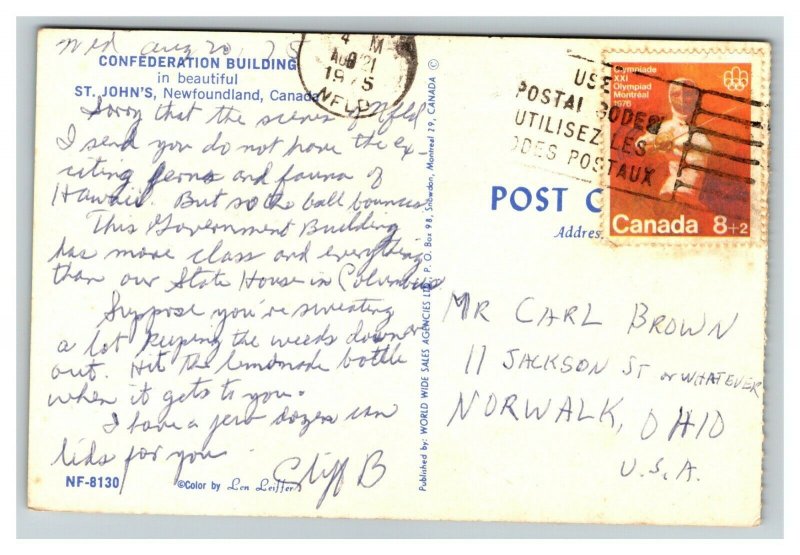 Wed Aug 20, 75
CONFEDERATION BUILDING
in beautiful
ST. JOHN'S, Newfoundland, Canada
Sorry that the scenes of Nfld
I send you do not have the ex-
citing ferns and fauna of
Hawaii. But so the ball bounces.
This Government Building
has more class and everything
than our State House in Columbus
Suppose you're sweating
a lot keeping the weeds down or
out. Hit the lemonade bottle
when it gets to you.
I have a few dozen can
lids for you
Cliff B
NF-8130
©Color by Len Leiffer
Published by: WORLD WIDE SALES AGENCIES LTD., P. O. Box 98, Snowdon, Montreal 29, CANADA ©
4 M
AUG 21
1975
NFLD
USE
POSTAL CODES
UTILISEZ LES
ODES POSTAUX
Olympiade
XXI
Olympiad
Montréal
1976
Canada 8+2
POST C
Address
MR CARL BROWN
11 JACKSON ST or WHATEVER
NORWALK, OHIO
U.S.A.